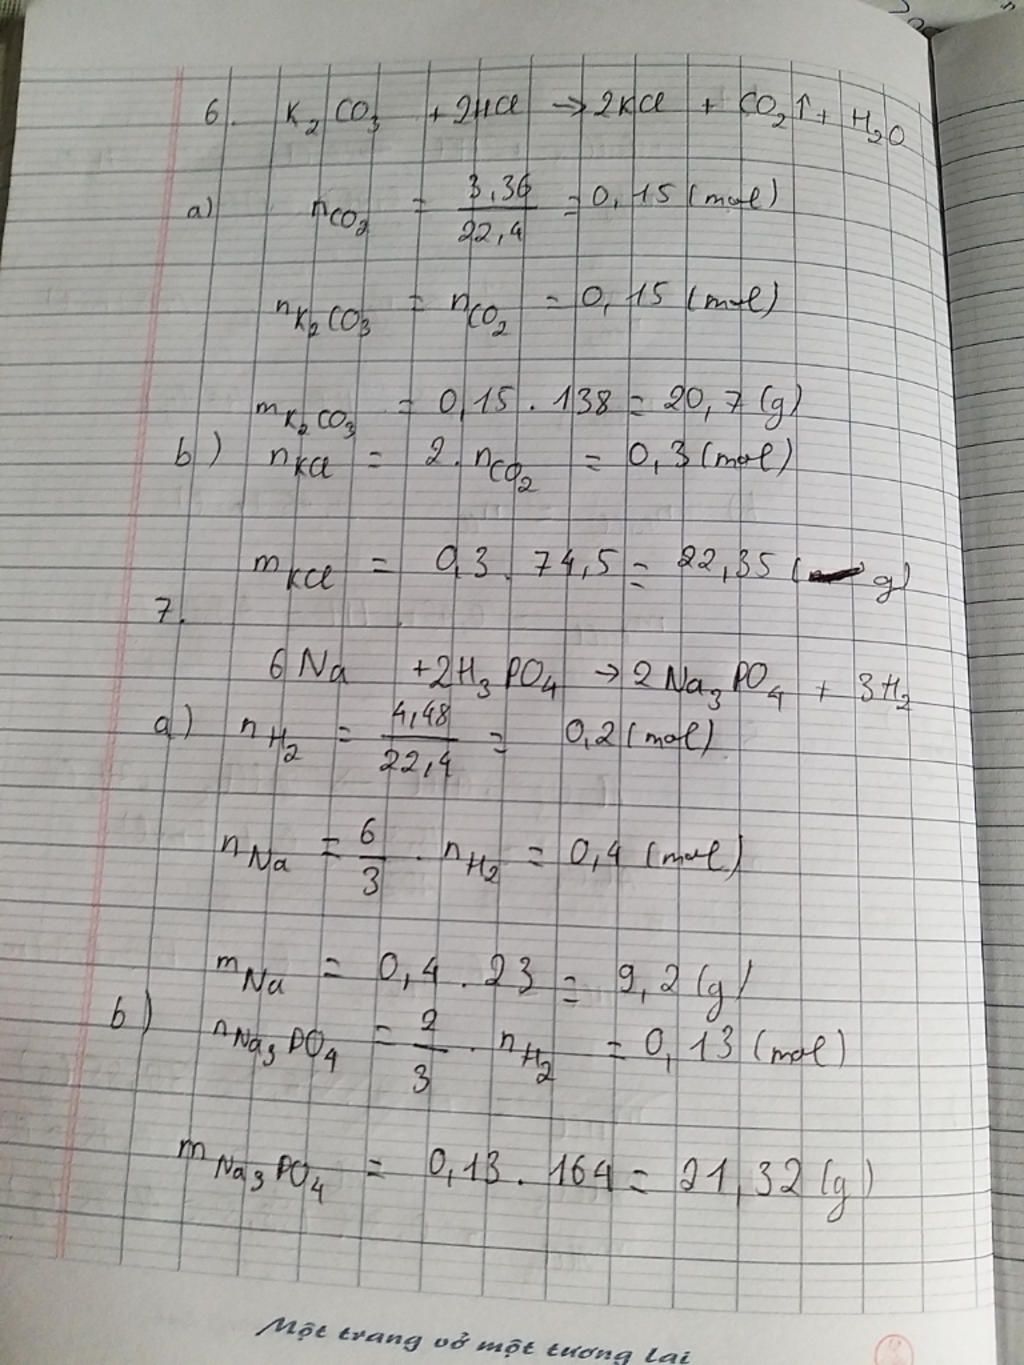 6. K₂CO₃ + 2HCl → 2KCl + CO₂↑ + H₂O
a) nCO₂ = 3,36/22,4 = 0,15 (mol)
nK₂CO₃ = nCO₂ = 0,15 (mol)
mK₂CO₃ = 0,15 . 138 = 20,7 (g)
b) nKCl = 2 . nCO₂ = 0,3 (mol)
mKCl = 0,3 . 74,5 = 22,35 (g)
7.
6Na + 2H₃PO₄ → 2Na₃PO₄ + 3H₂
a) nH₂ = 4,48/22,4 = 0,2 (mol)
nNa = 6/3 . nH₂ = 0,4 (mol)
mNa = 0,4 . 23 = 9,2 (g)
b) nNa₃PO₄ = 2/3 . nH₂ = 0,13 (mol)
mNa₃PO₄ = 0,13 . 164 = 21,32 (g)
Một trang vở một tương lai